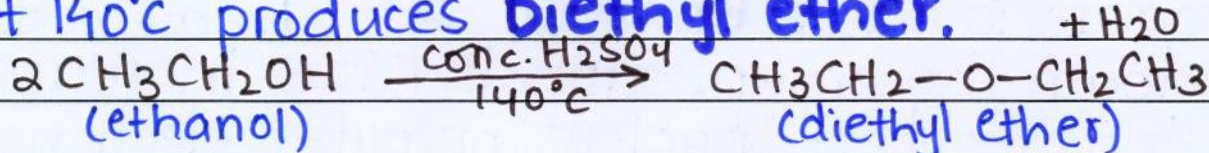 + 140°C produces Diethyl ether.
+ H2O
2 CH3CH2OH conc. H2SO4 140°C CH3CH2-O-CH2CH3
(ethanol) (diethyl ether)